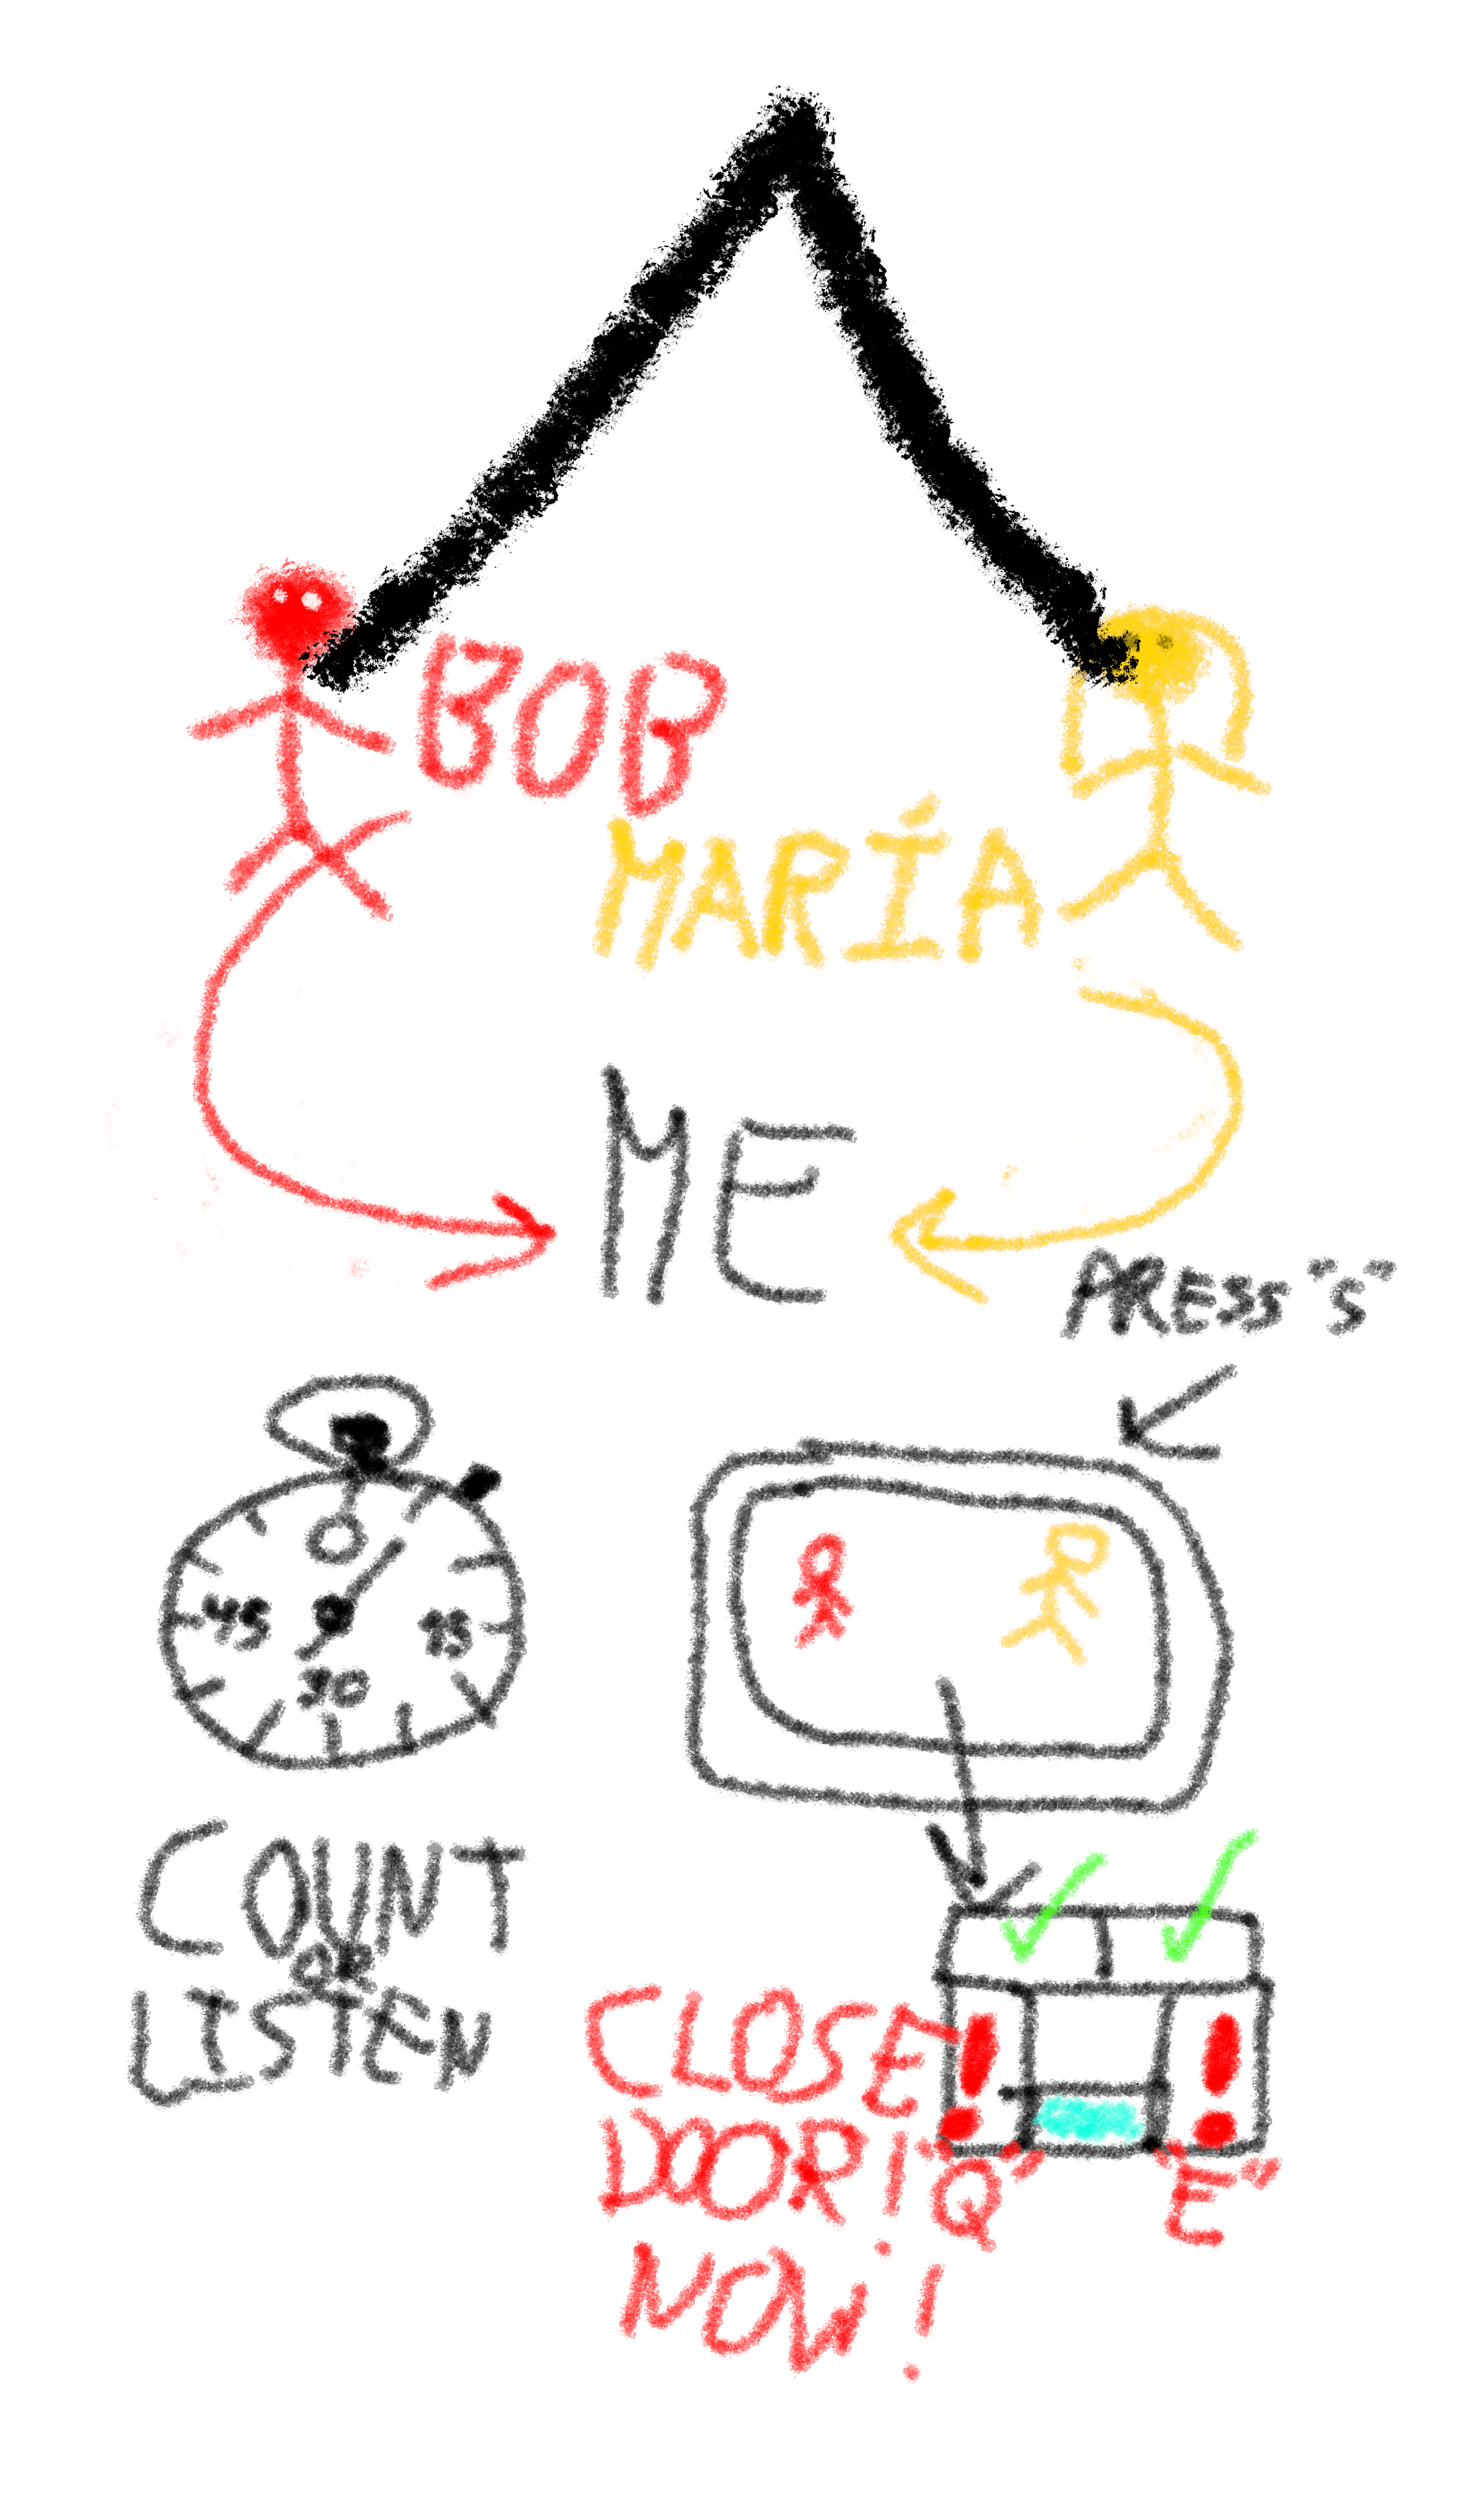 BOB
MARÍA
ME
PRESS "S"
0
45 15
30
COUNT
OR
LISTEN
CLOSE
DOOR!
"Q" "E"
NOW!